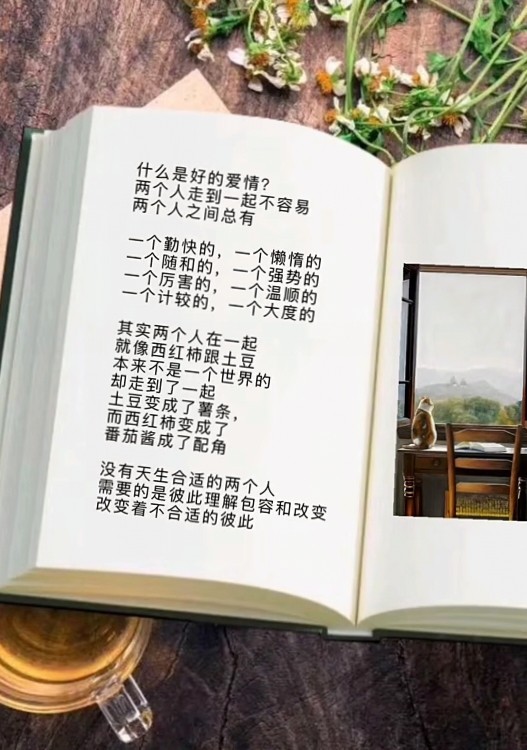 什么是好的爱情？
两个人走到一起不容易
两个人之间总有
一个勤快的，一个懒惰的
一个随和的，一个强势的
一个厉害的，一个温顺的
一个计较的，一个大度的
其实两个人在一起
就像西红柿跟土豆
本来不是一个世界的
却走到了一起
土豆变成了薯条，
而西红柿变成了
番茄酱成了配角
没有天生合适的两个人
需要的是彼此理解包容和改变
改变着不合适的彼此